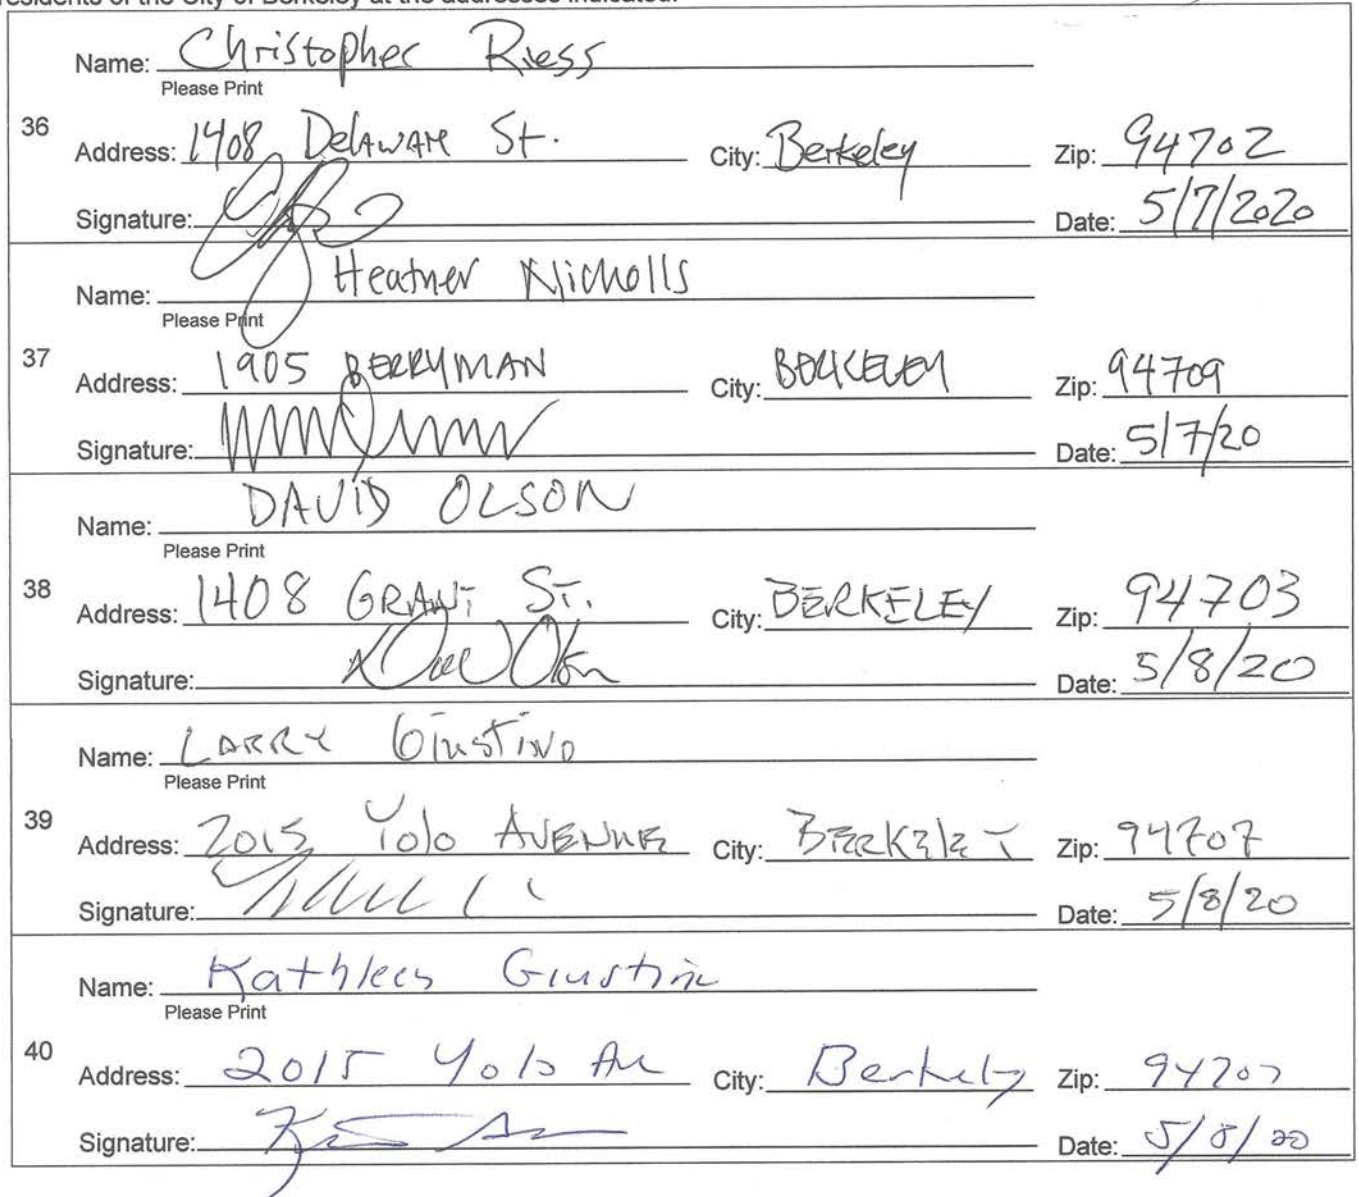 residents of the City of Berkeley at the addresses indicated.
Name: Christopher Riess
Please Print
36
Address: 1408 Delaware St. City: Berkeley Zip: 94702
Signature: Date: 5/7/2020
Name: Heather Nicholls
Please Print
37
Address: 1905 BERRYMAN City: BERKELEY Zip: 94709
Signature: Date: 5/7/20
Name: DAVID OLSON
Please Print
38
Address: 1408 GRANT ST. City: BERKELEY Zip: 94703
Signature: Date: 5/8/20
Name: LARRY GiustiNO
Please Print
39
Address: 2015 Yolo AVENUE City: BERKELEY Zip: 94707
Signature: Date: 5/8/20
Name: Kathleen Giustino
Please Print
40
Address: 2015 Yolo Av City: Berkeley Zip: 94707
Signature: Date: 5/8/20